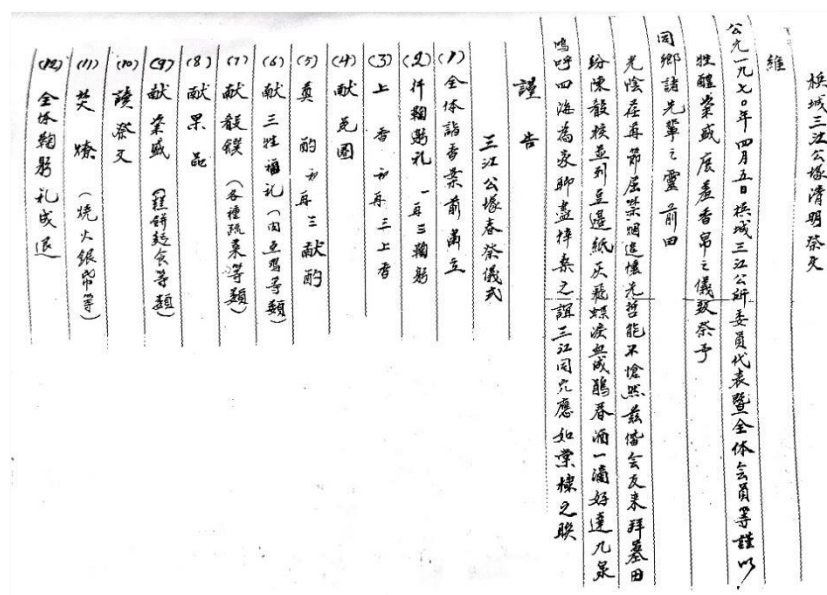 槟城三江公塚清明祭文
維
公元一九七〇年四月五日槟城三江公所委員代表暨全体会員等謹以
牲醴粢盛庶羞香帛之儀致祭于
同鄉諸先輩之靈前曰
光陰荏苒節屆禁烟追懷先哲能不愴然兹偕会友来拜墓田
紛陳殽核並列豆籩紙灰飛蝶淚血成鵑春酒一滴好達九泉
嗚呼四海為家聊盡梓桑之誼三江同穴應如棠棣之联
謹告
三江公塚春祭儀式
(1) 全体詣香案前肅立
(2) 行鞠躬礼 一再三鞠躬
(3) 上香 初再三上香
(4) 献花圈
(5) 奠酌 初再三献酌
(6) 献三牲福礼 (肉魚鴨等類)
(7) 献殽饌 (各種蔬菜等類)
(8) 献果品
(9) 献粢盛 (糕餅麵食等類)
(10) 讀祭文
(11) 焚燎 (燒火銀帛等)
(12) 全体鞠躬礼成退